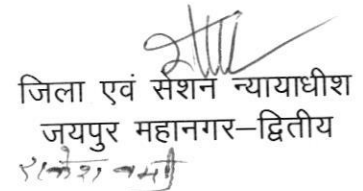 जिला एवं सेशन न्यायाधीश
जयपुर महानगर–द्वितीय
राकेश वर्मा